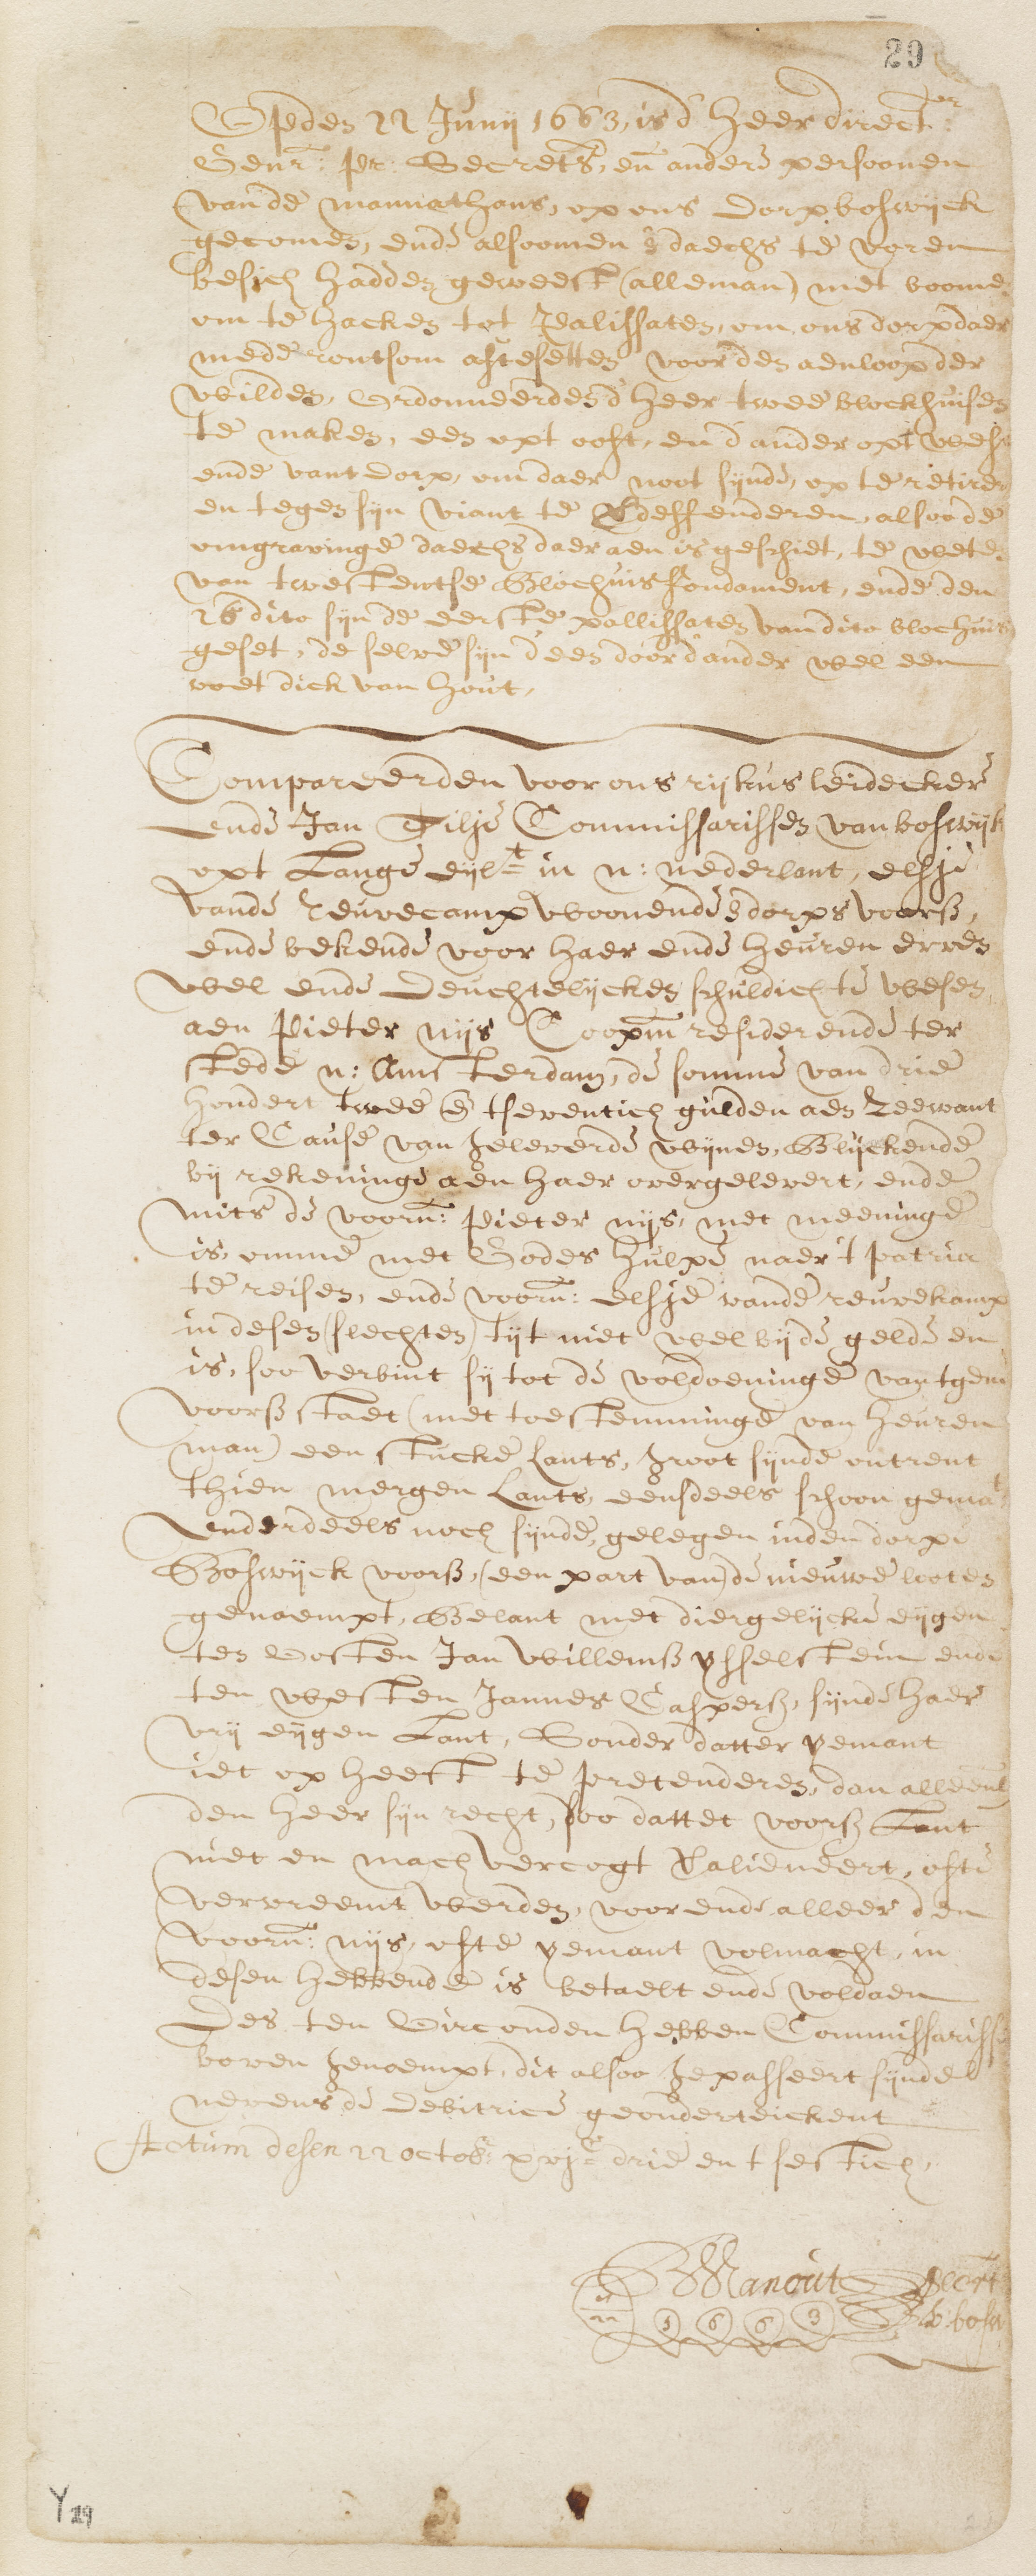 29
Opden 22 Junij 1663, is d' Heer direct:or
Gen.r: p.r: Secret.s, en anders persoonen
van de mannathans, op ons dorp boswijck
gecomen, ende alsoomen s' daechs te voren
besich hadden geweest (alleman) met boome
om te hacken tot Palissaten, om ons dorp daer
mede rontsom aff te setten voor den aenloop der
wilden, Ordonneerden d' Heer twee blockhuisen
te maken, een opt oost, en d' ander opt west
ende vant dorp, om daer noot sijnde, op te retiren
en tegen sijn viant te deffenderen, alsoo de
omgravinge daechs daer aen is geschiet, te weten
van twestentse Blochuis fondament, ende den
26 dito sijn de eerste pallissaten van dito blochuis
geset, de selve sijn d' een door d' ander wel een
voet dick van hout,
Compareerden voor ons rijkus leidecker
ende Jan Tilje Commissarissen van boswijk
opt Lange eijl.t in n: nederlant, elsje
vande reuvecamp woonende s' dorps voorß,
ende bekende voor haer ende heuren erven
wel ende deuchtelijcken schuldich te wesen,
aen Pieter nijs Coopm residerende ter
stede n: Amsterdam, de somme van drie
hondert twee e tseventich gulden aen Zeewant
ter Cause van geleverde wijnen, Blijckende
bij rekeninge aen haer overgelevert, ende
mits de voorn: Pieter nijs, met meeninge
is, omme met Godes hulpe naer 't patria
te reisen, ende voorn: elsje vande reuvekamp
in desen (slechten) tijt niet wel bij de gelde en
is, soo verbint sij tot de voldoeninge van tgene
voorß staet (met toestemminge van heuren
man) een stucke Lants, groot sijnde ontrent
thien mergen Lants, eensdeels schoon gema.t
anderdeels noch sijnde, gelegen inden dorpe
Boswijck voorß, (een part van) de nieuwe looten
genoempt, Belant met diergelijcke eijgen
ten Oosten Jan Willemß ijsselstein ende
ten westen Jannes Casperß, sijnde haer
vrij eijgen Lant, Sonder datter yemant
iet op heeft te pretenderen, dan alleenl
den heer sijn recht, soo dattet voorß Lant
niet en mach vercogt Valieneert, ofte
vervreemt werden, voor ende alleer den
voorn: nijs, ofte yemant volmacht, in
desen hebbende is betaelt ende voldaen
Des ten Oirconden hebben Commissarisse
boven genoempt, dit alsoo gepasseert sijnde
nevens de debitrice geonderteickent
Actum desen 22 octob: xvj.c drie en tsestich,
Manout Secrt
1 6 6 3 bosw
Y 29